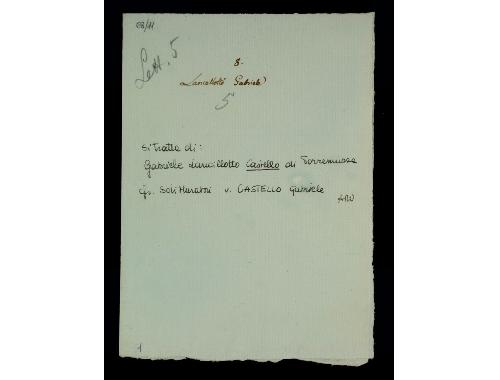 Lett. 5
8.
Lancellotto Gabriele
5
si tratta di:
Gabriele Lancillotto Castello di Torremuzza
cfr. Soli Muratori v. CASTELLO Gabriele
1